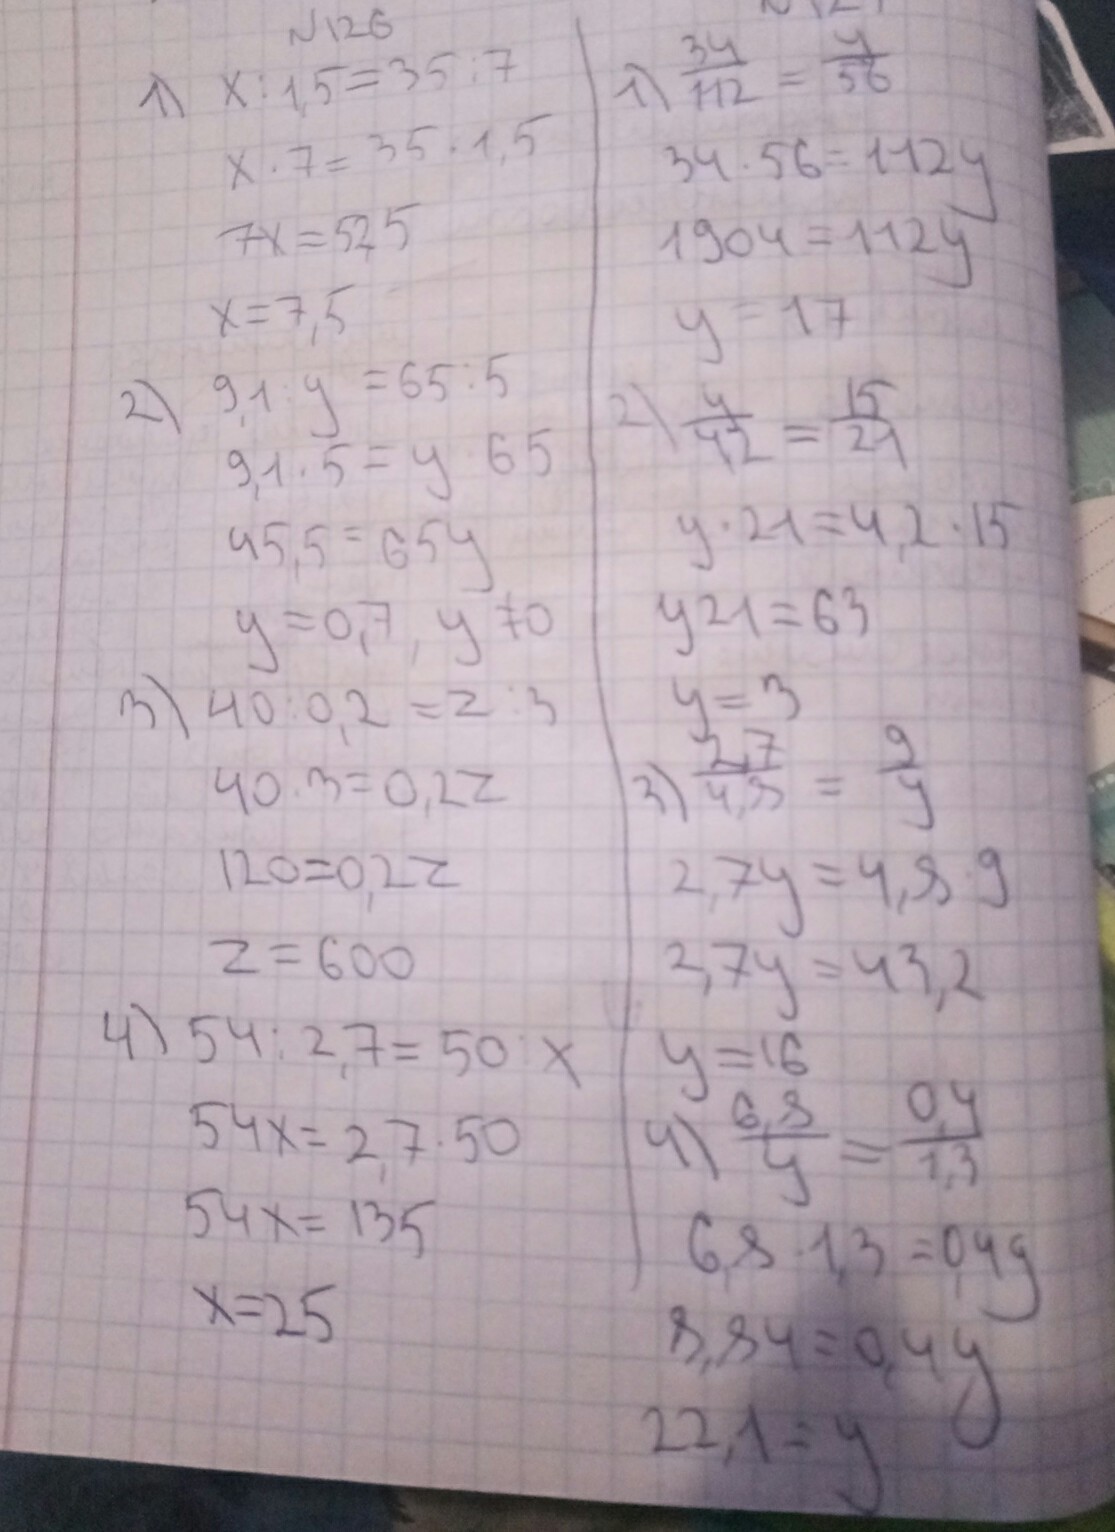 N126
1) x : 1,5 = 35 : 7
x · 7 = 35 · 1,5
7x = 52,5
x = 7,5
2) 9,1 : y = 65 : 5
9,1 · 5 = y 65
45,5 = 65y
y = 0,7, y 70
3) 40 : 0,2 = z : 3
40 · 3 = 0,2z
120 = 0,2z
z = 600
4) 54 : 2,7 = 50 : x
54x = 2,7 · 50
54x = 135
x = 25
1) 34/112 = y/56
34 · 56 = 112y
1904 = 112y
y = 17
2) y/4,2 = 15/21
y · 21 = 4,2 · 15
y21 = 63
y = 3
3) 2,7/4,8 = 9/y
2,7y = 4,8 · 9
2,7y = 43,2
y = 16
4) 6,8/y = 0,4/1,3
6,8 · 1,3 = 0,4y
8,84 = 0,4y
22,1 = y